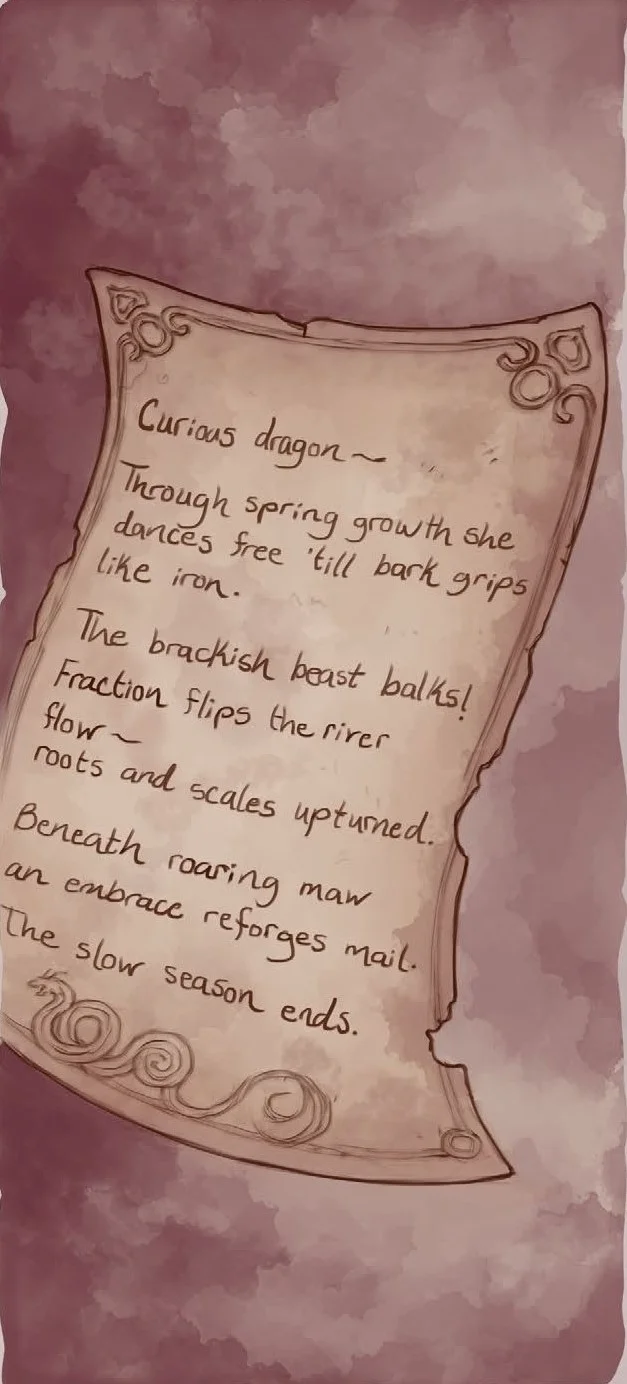 Curious dragon ~
Through spring growth she
dances free 'till bark grips
like iron.
The brackish beast balks!
Fraction flips the river
flow ~
roots and scales upturned.
Beneath roaring maw
an embrace reforges mail.
The slow season ends.